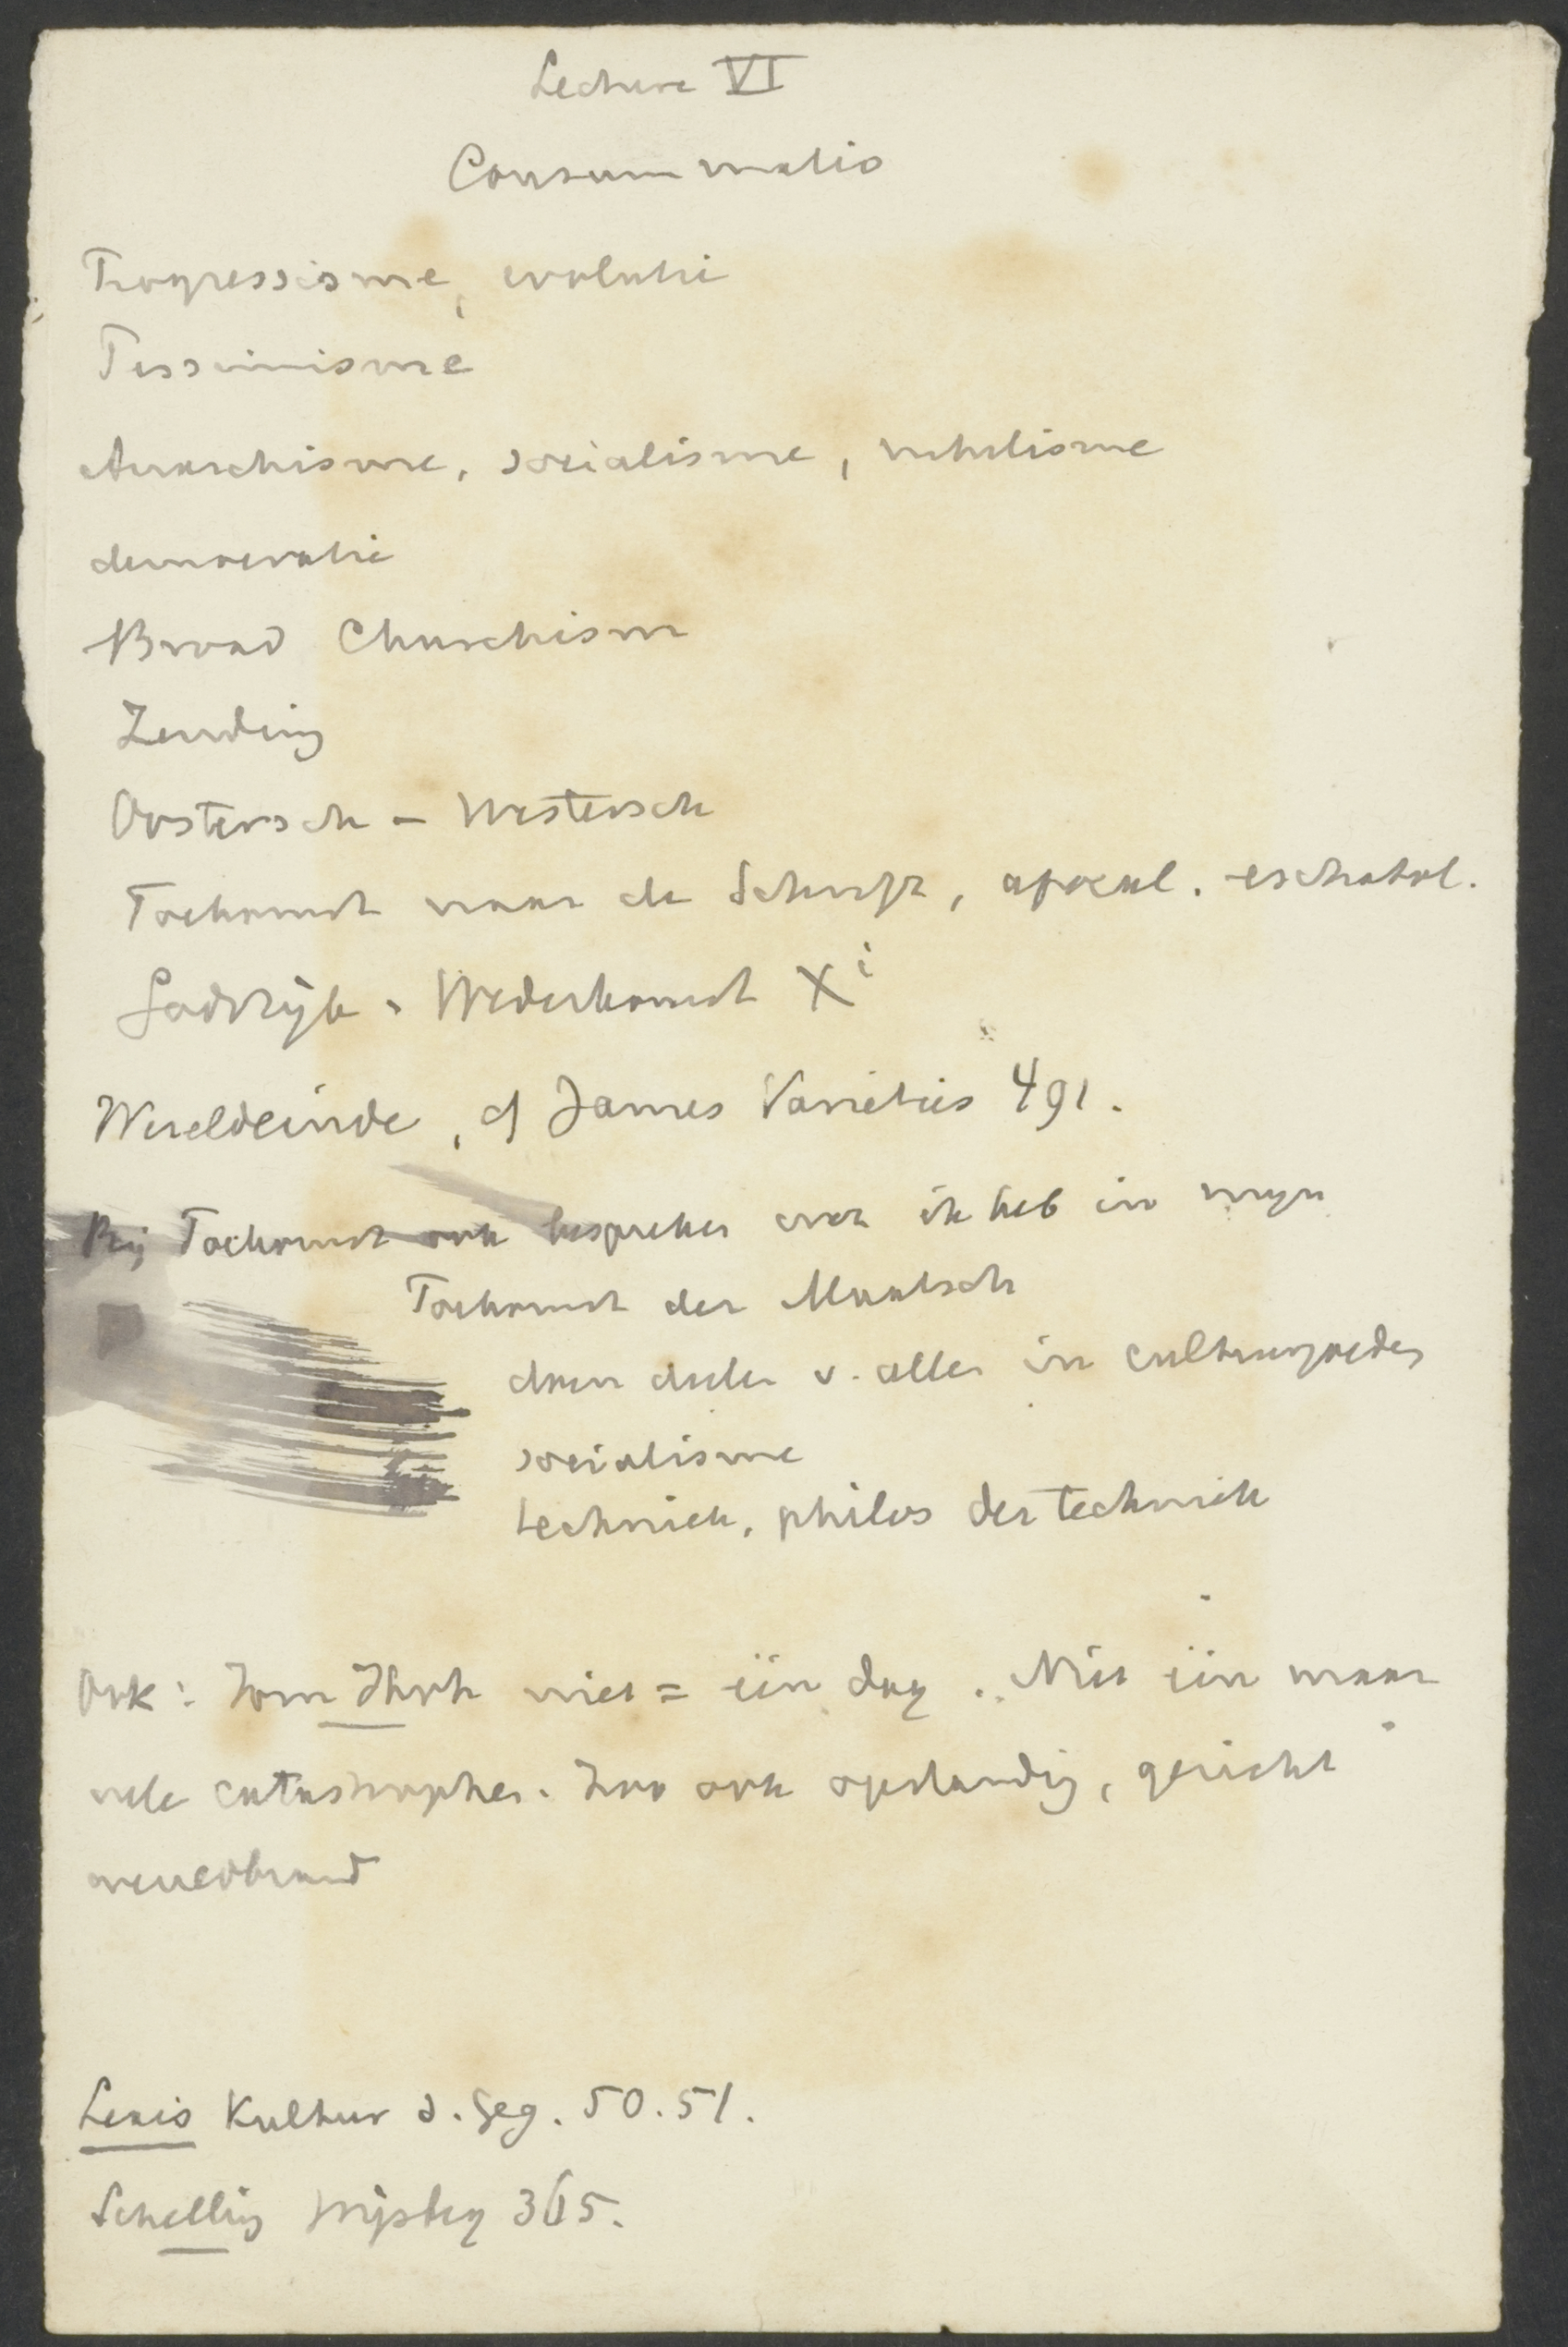 Lecture VI
Consummatio
Progressisme, evolutie
Pessimisme
Anarchisme, socialisme, nihilisme
democratie
Broad Churchism
Zending
Oostersch - Westersch
Toekomst naar de Schrift, apocal. eschatol.
Godsrijk. Wederkomst Xi
Wereldeinde, cf James Varieties 491.
Bij Toekomst ook bespreken wat ik heb in mijn
Toekomst der Maatsch
doen deelen v. allen in cultuurgoederen
socialisme
techniek, philos der techniek
Ook: Jom Jhvh niet = één dag. Niet één maar
vele catastrophes. Zoo ook opstanding, gericht
wereldbrand
Lexis Kultur d. Geg. 50.51.
Schelling 365.